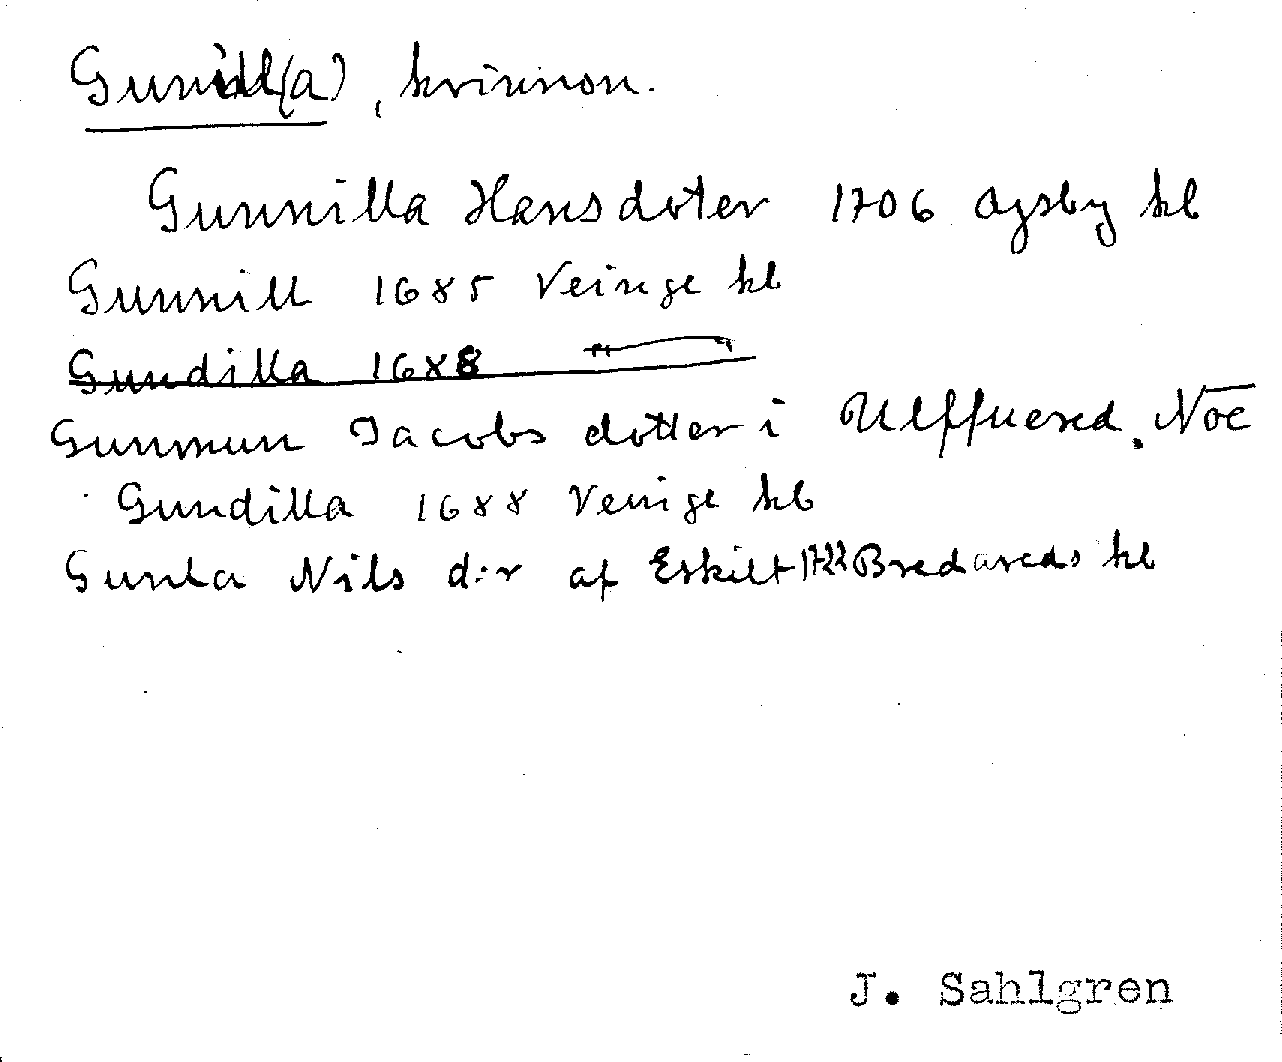 Gunnill(a), kvinnon.
Gunnilla Hansdoter 1706 Aysby kb
Gunnill 1685 Veinge kb
Gundilla 1688
Gunnun Jacobs dotter i Ulffuered. Noe
Gundilla 1688 Veinge kb
Gunla Nils d:r af Eskilt 1722 Bredareds kb
J. Sahlgren